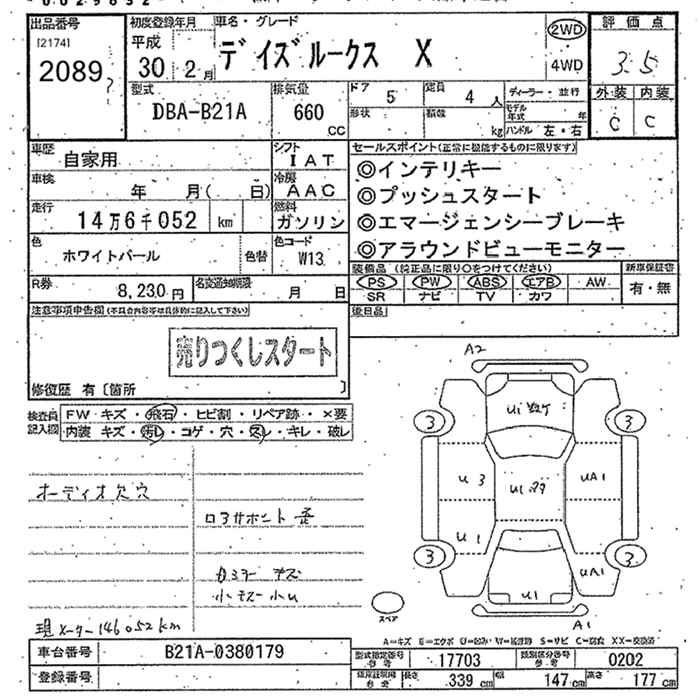 出品番号 初度登録年月 車名・グレード 2WD 評価点
[2174] 平成 デイズルークス X 3.5
2089 30 2月 4WD
型式 排気量 ドア 定員 ディーラー・並行 外装 内装
DBA-B21A 660 CC 5 4人 モデル年式 年 C C
形状 積数 kg ハンドル 左・右
車歴 シフト セールスポイント(正常に機能するものに限ります)
自家用 IAT ◎インテリキー
車検 年 月( 日) 冷房 AAC ◎プッシュスタート
走行 14万6千052 km 燃料 ガソリン ◎エマージェンシーブレーキ
色 ホワイトパール 色替 色コード W13 ◎アラウンドビューモニター
装備品 (純正品に限り○をつけてください) 新車保証書
R券 8,230円 名変通知期限 月 日 PS PW ABS エアB AW 有・無
SR ナビ TV カワ
注意事項申告欄(不具合内容等は具体的に記入して下さい) 後日品
売りつくしスタート
修復歴 有〔箇所 〕
検査員 FW キズ・飛石・ヒビ割・リペア跡・×要
記入欄 内装 キズ・汚レ・コゲ・穴・スレ・キレ・破レ
オーディオ欠穴
ロアサポート 歪
カミラー キズ
現メーター146052km
A2
3 3
U3 UA1
U1 UA1
3 3
U1
スペア A1
A=キズ E=エクボ U=凹ミ W=補修跡 S=サビ C=腐食 XX=交換済
車台番号 B21A-0380179 型式指定番号 参考 17703 類別区分番号 参考 0202
登録番号 長さ 339 cm 幅 147 cm 高さ 177 cm